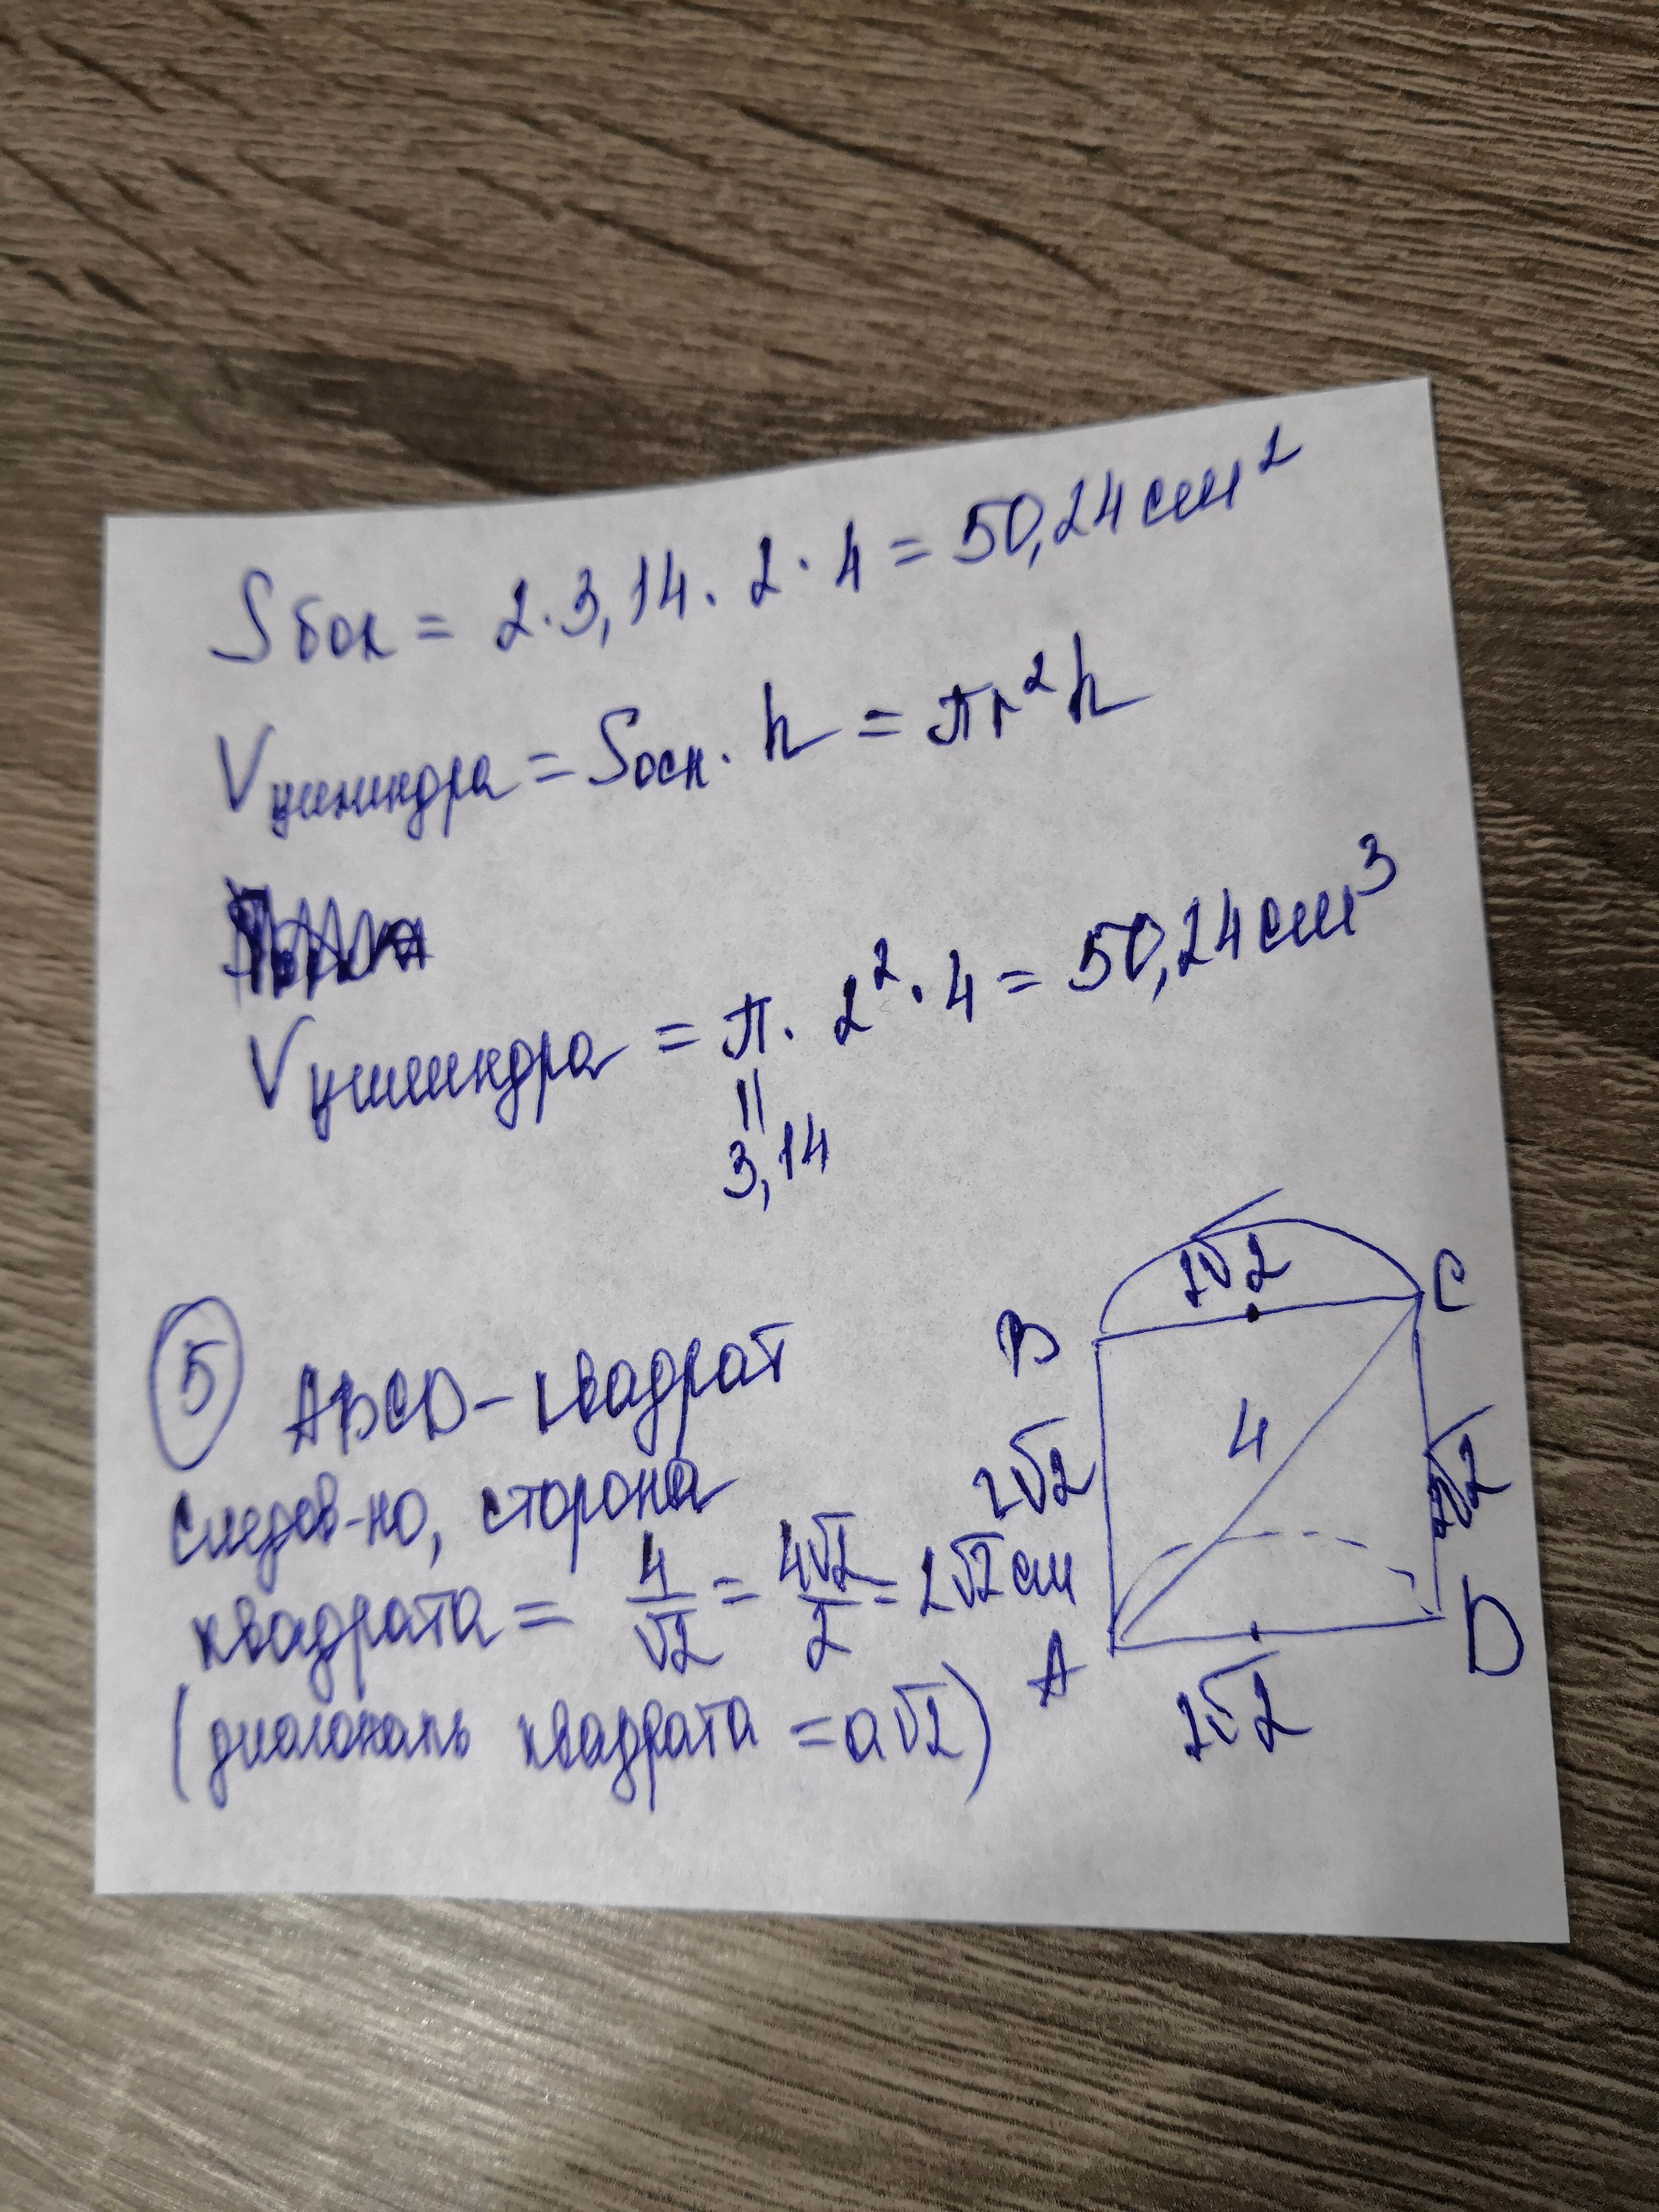 Sбок = 2·3,14·2·4 = 50,24 см²
Vцилиндра = Sосн·h = πr²h
Vцилиндра = π·2²·4 = 50,24 см³
||
3,14
2√2
B
C
5
ABCD – квадрат
4
2√2
2√2
следов-но, сторона
квадрата = 4/√2 = 4√2/2 = 2√2 см
A
D
(диагональ квадрата = a√2)
2√2